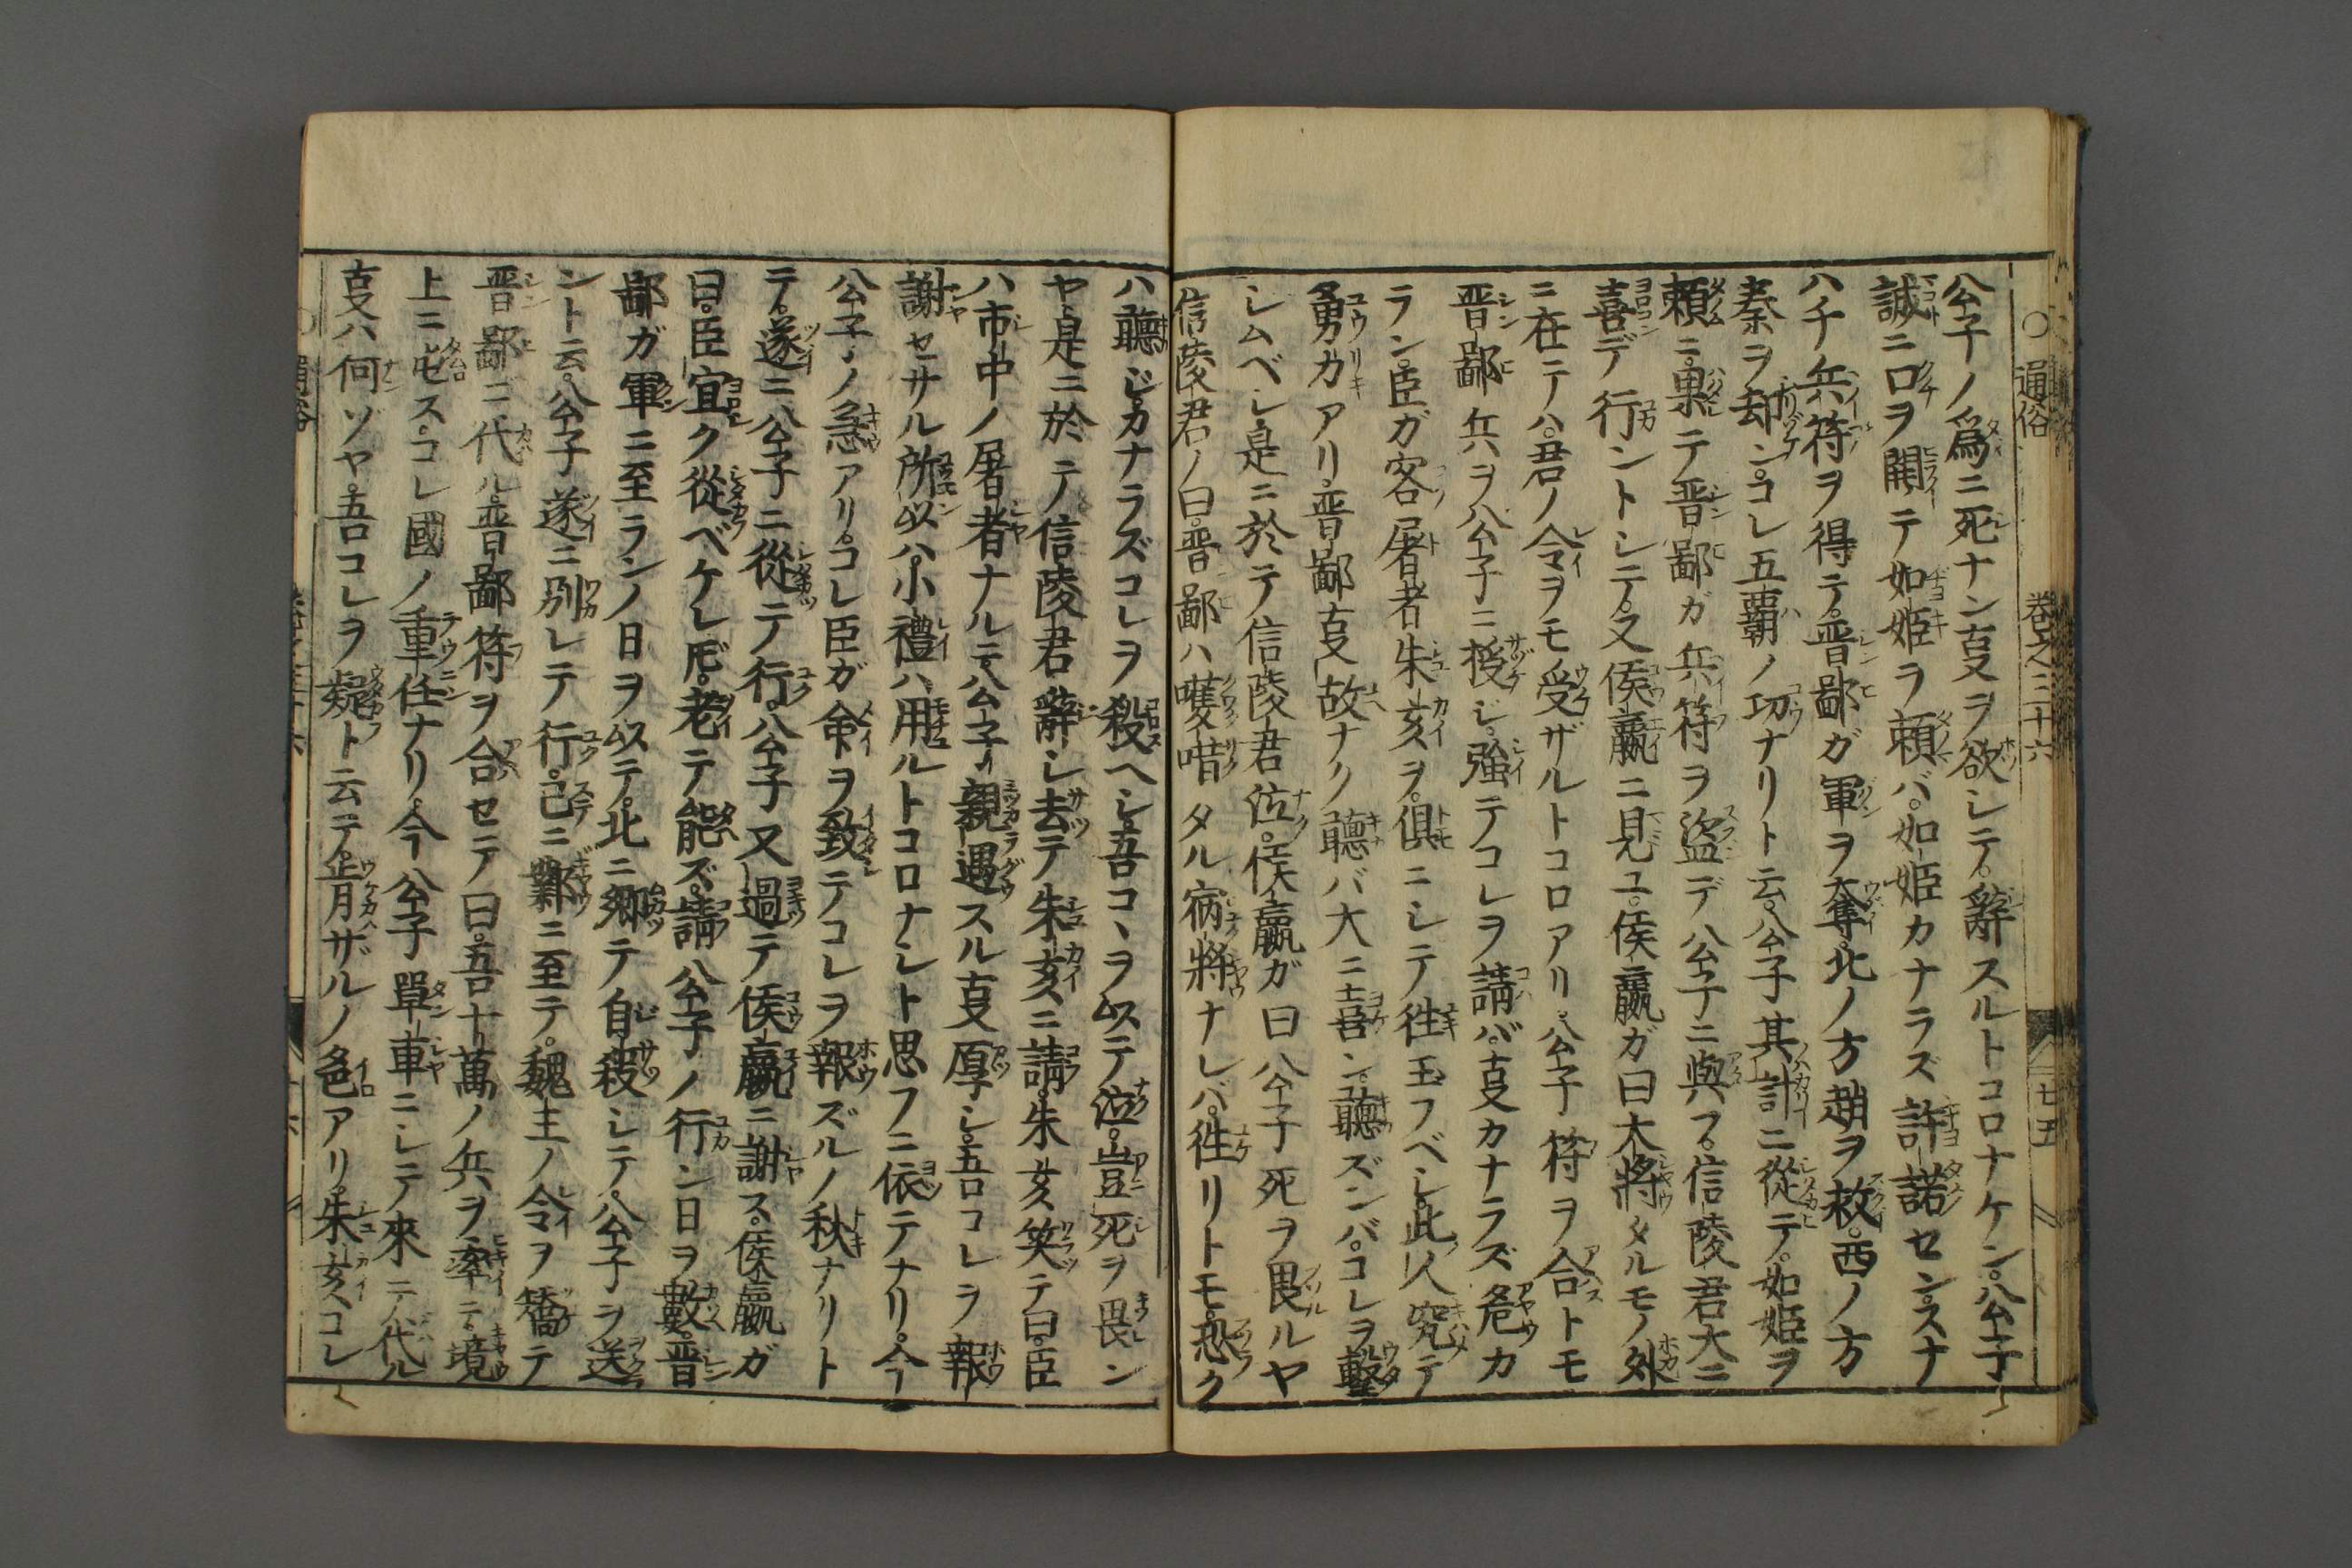 通俗 巻之三十六 七五
公子ノ爲ニ死ナン叓ヲ欲シテ。辭スルトコロナケン。公子
誠ニ口ヲ開テ如姫ヲ頼バ。如姫カナラズ許諾セン。スナ
ハチ兵符ヲ得テ。晋鄙ガ軍ヲ奪。北ノ方趙ヲ救。西ノ方
秦ヲ却ン。コレ五覇ノ功ナリト云。公子其計ニ從テ。如姫ヲ
頼ニ。果テ晋鄙ガ兵符ヲ盗デ公子ニ與フ。信陵君大ニ
喜デ行ントシテ。又侯嬴ニ見ユ。侯嬴ガ曰大將タルモノ外
ニ在テハ。君ノ令ヲモ受ザルトコロアリ。公子符ヲ合トモ
晋鄙兵ヲ公子ニ授ジ。強テコレヲ請バ。叓カナラズ危カ
ラン。臣ガ客屠者朱亥ヲ。倶ニシテ徃玉フベシ。此人究テ
勇力アリ。晋鄙叓故ナク聽バ大ニ喜ン。聽ズンバ。コレヲ撃
シムベシ。是ニ於テ信陵君泣。侯嬴ガ曰公子死ヲ畏ルヤ
信陵君ノ曰。晋鄙ハ嚄唶タル宿將ナレバ。徃リトモ。恐ク
ハ聽ジ。カナラズコレヲ殺ヘシ。吾コヽヲ以テ泣。豈死ヲ畏ン
ヤ。是ニ於テ信陵君辭シ去テ朱亥ニ請。朱亥笑テ曰。臣
ハ市中ノ屠者ナルニ。公子親遇スル叓厚シ。吾コレヲ報
謝セサル所以ハ。小禮ハ用ルトコロナシト思フニ依テナリ。今
公子ノ急アリ。コレ臣ガ命ヲ致テコレヲ報ズルノ秋ナリト
テ。遂ニ公子ニ從テ行。公子又過テ侯嬴ニ謝ス。侯嬴ガ
曰。臣宜ク從ベケレ𪜈。老テ能ズ。請公子ノ行ン日ヲ數。晋
鄙ガ軍ニ至ランノ日ヲ以テ。北ニ郷テ自殺シテ。公子ヲ送
ント云。公子遂ニ別レテ行。己ニ鄴ニ至テ。魏王ノ令ヲ矯テ
晋鄙ニ代ル。晋鄙符ヲ合セテ曰。吾十萬ノ兵ヲ率テ。境
上ニ屯ス。コレ國ノ重任ナリ。今公子單車ニシテ來テ代ル
叓ハ何ゾヤ。吾コレヲ疑ト云テ。肯ザルノ色アリ。朱亥コレ